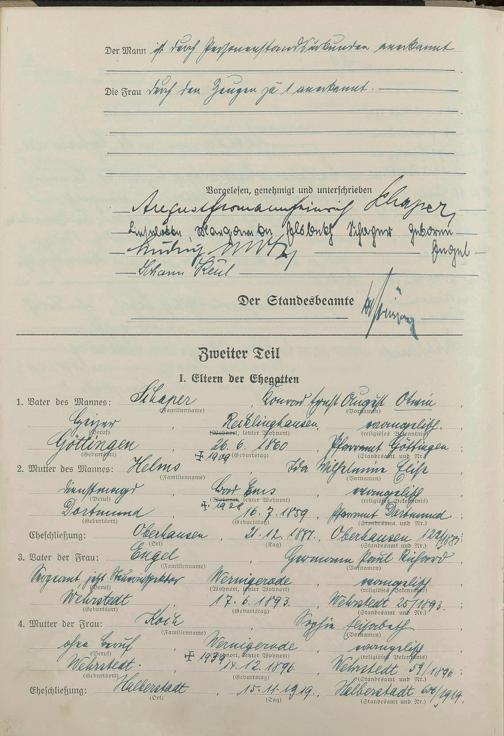 Der Mann ist durch Personenstandsurkunden anerkannt
Die Frau durch den Zeugen zu 1 anerkannt.
Vorgelesen, genehmigt und unterschrieben
August Hermann Heinrich Schaper
Schaper geborene
Engel
Johann Keil
Der Standesbeamte
Zweiter Teil
I. Eltern der Ehegatten
1. Vater des Mannes: Schaper, Konrad Ernst August Otwin
(Familienname) (Vornamen)
Recklinghausen, evangelisch
(Beruf) (Wohnort, letzter Wohnort) (religiöses Bekenntnis)
Göttingen, 26. 6. 1860, Pfarramt Göttingen;
(Geburtsort) ‡ 1909 (Geburtstag) (Standesamt und Nr.)
2. Mutter des Mannes: Helms, Ida Wilhelmine Elise
(Familienname) (Vornamen)
Dienstmagd, Bad Ems, evangelisch
(Beruf) (Wohnort, letzter Wohnort) (religiöses Bekenntnis)
Dortmund, 16. 7. 1859, Pfarramt Dortmund;
(Geburtsort) (Geburtstag) (Standesamt und Nr.)
Eheschließung: Oberhausen, Oberhausen
(Ort) (Tag) (Standesamt und Nr.)
3. Vater der Frau: Engel, Hermann Paul Richard
(Familienname) (Vornamen)
Sergeant jetzt Wernigerode, evangelisch
(Beruf) (Wohnort, letzter Wohnort) (religiöses Bekenntnis)
Wehrstedt, 17. 6. 1893. Wehrstedt 25/1893.;
(Geburtsort) (Geburtstag) (Standesamt und Nr.)
4. Mutter der Frau: Koch, Sophie Elisabeth
(Familienname) (Vornamen)
ohne Beruf, Wernigerode, evangelisch
(Beruf) (Wohnort, letzter Wohnort) (religiöses Bekenntnis)
Wehrstedt. 14. 12. 1896. Wehrstedt 59/1896.;
(Geburtsort) (Geburtstag) (Standesamt und Nr.)
Eheschließung: Halberstadt, 15. 11. 1919. Halberstadt
(Ort) (Tag) (Standesamt und Nr.)